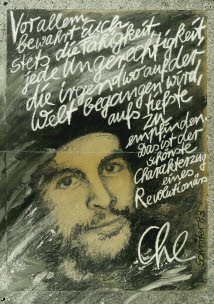 Vor allem
bewahrt euch
stets die Fähigkeit,
jede Ungerechtigkeit,
die irgendwo auf der
Welt begangen wird,
aufs tiefste
zu
empfinden.
Das ist der
schönste
Charakterzug
eines
Revolutionärs
Che